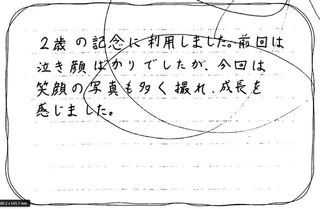 2歳の記念に利用しました。前回は
泣き顔ばかりでしたが、今回は
笑顔の写真も多く撮れ、成長を
感じました。